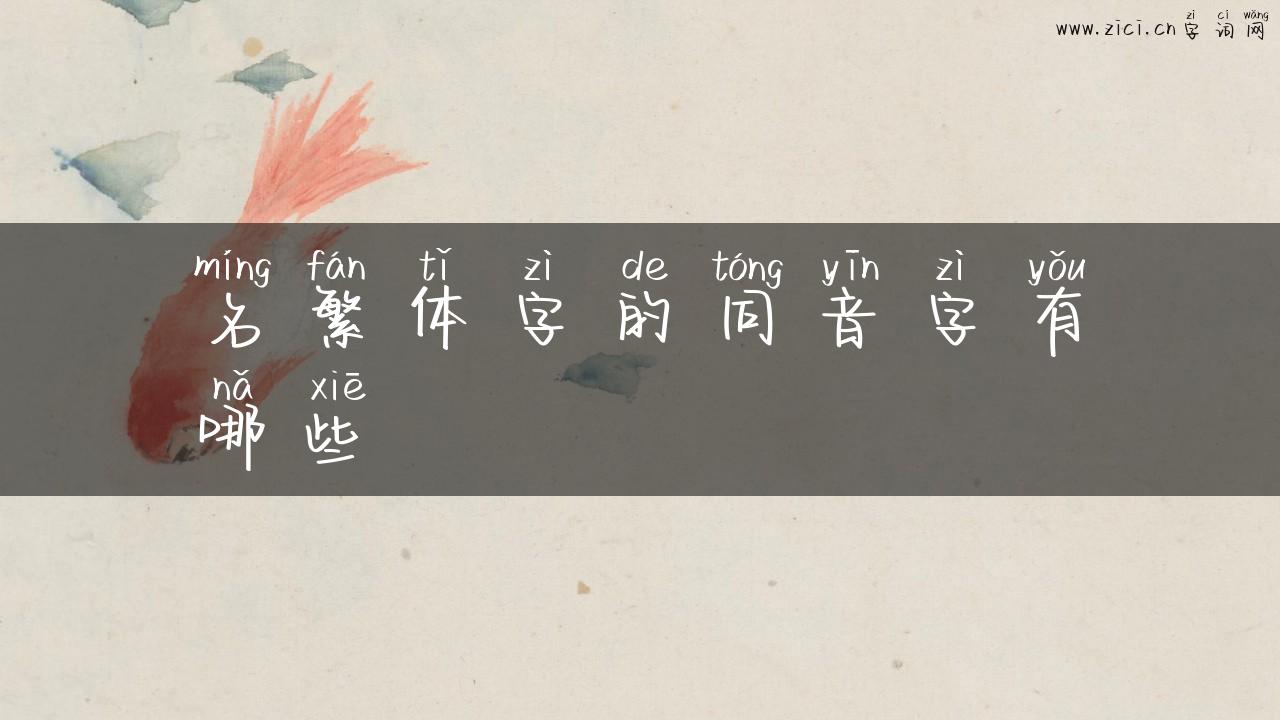 zì cí wǎng
www.zici.cn 字词网
míng fán tǐ zì de tóng yīn zì yǒu
名繁体字的同音字有
nǎ xiē
哪些